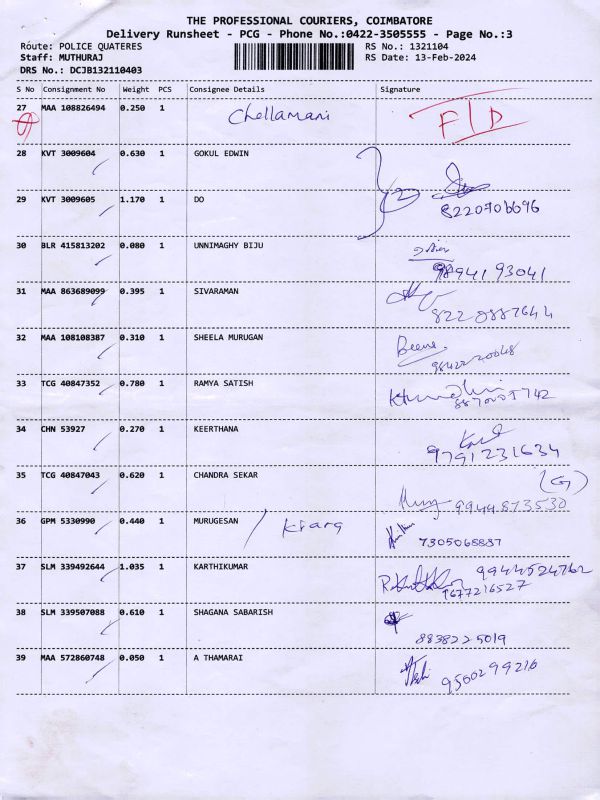 THE PROFESSIONAL COURIERS, COIMBATORE
Delivery Runsheet - PCG - Phone No.:0422-3505555 - Page No.:3
Route: POLICE QUATERES RS No.: 1321104
Staff: MUTHURAJ RS Date: 13-Feb-2024
DRS No.: DCJB132110403
S No Consignment No Weight PCS Consignee Details Signature
27 MAA 108826494 0.250 1 Chellamani F/D
28 KVT 3009604 0.630 1 GOKUL EDWIN
29 KVT 3009605 1.170 1 DO 2 8220706696
30 BLR 415813202 0.080 1 UNNIMAGHY BIJU 98941 93041
31 MAA 863689099 0.395 1 SIVARAMAN 822 0887644
32 MAA 108108387 0.310 1 SHEELA MURUGAN
33 TCG 40847352 0.780 1 RAMYA SATISH
34 CHN 53927 0.270 1 KEERTHANA 9791231634
35 TCG 40847043 0.620 1 CHANDRA SEKAR (G) 9944873530
36 GPM 5330990 0.440 1 MURUGESAN 7305068887
37 SLM 339492644 1.035 1 KARTHIKUMAR 9944524762
9677216527
38 SLM 339507088 0.610 1 SHAGANA SABARISH 8838225019
39 MAA 572860748 0.050 1 A THAMARAI 9500299210